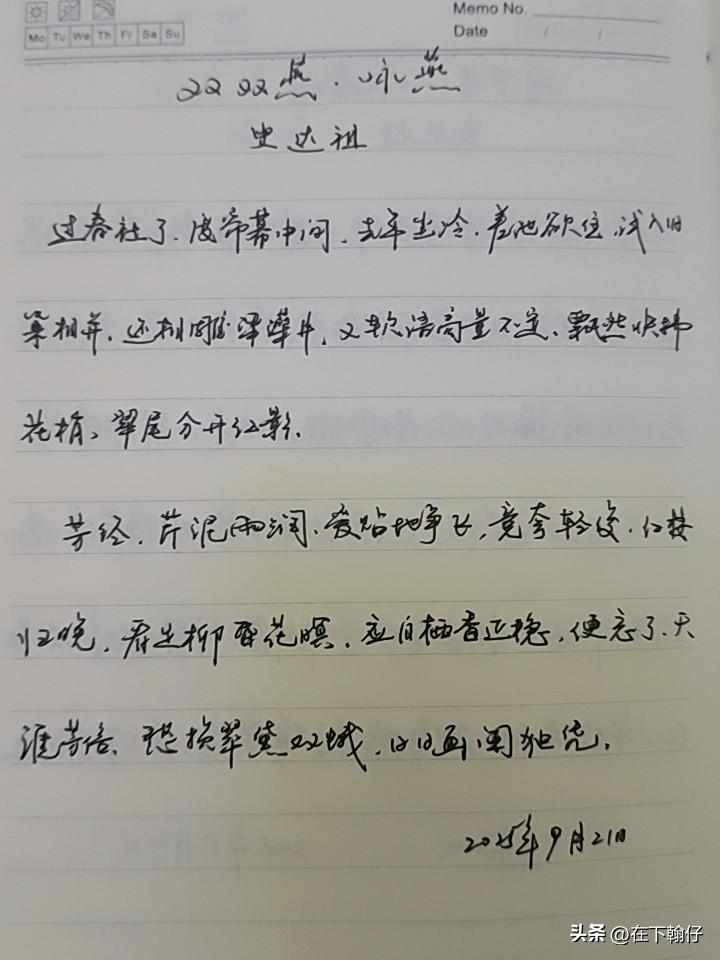 Memo No.
Mo Tu We Th Fr Sa Su
Date / /
双双燕·咏燕
史达祖
过春社了、度帘幕中间、去年尘冷、差池欲住、试入旧
巢相并、还相雕梁藻井、又软语商量不定、飘然快拂
花梢、翠尾分开红影、
芳径、芹泥雨润、爱贴地争飞、竞夸轻俊、红楼
归晚、看足柳昏花暝、应自栖香正稳、便忘了、天
涯芳信、恐损翠黛双蛾、日日画阑独凭。
2025年9月21日
头条 @在下翰仔